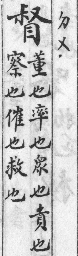 ㄉㄨ.
督
董也率也眾也責也
察也催也救也